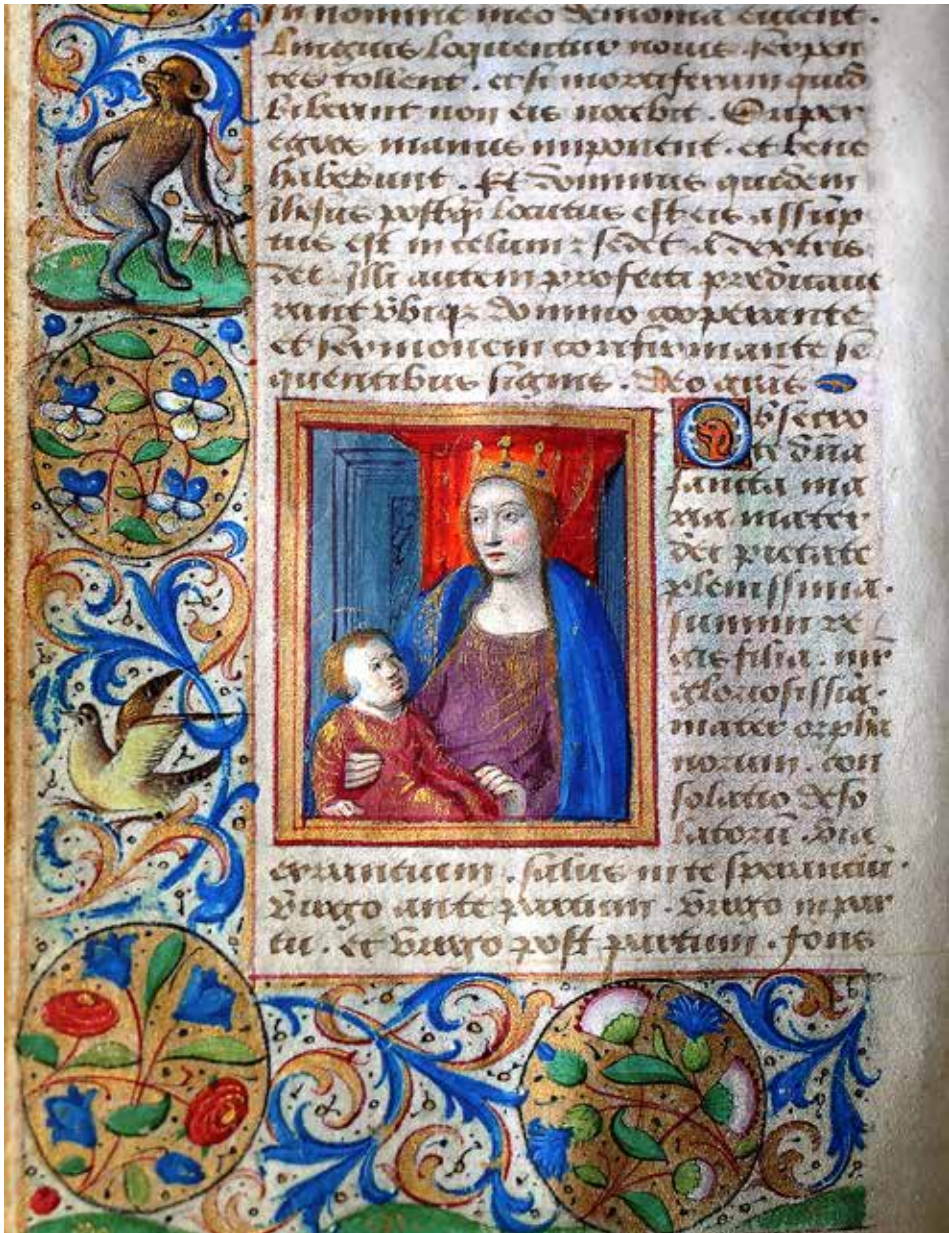 In nomine meo demonia eicient.
Linguis loquentur nouis. Serpen
tes tollent. et si mortiferum quid
biberint non eis nocebit. Super
egros manus imponent. et bene
habebunt. Et dominus quidem
ihesus postq̃ locutus est eis assup
tus est in celum: sedet a dextris
dei. Illi autem profecti predicaue
runt vbiq; domino cooperante
et sermonem confirmante se
quentibus signis. Deo gr̃as
Obsecro
te dña
sancta ma
ria mater
dei pietate
plenissima.
summi re
gis filia. mr̃
gloriosissia.
mater orpha
norum. con
solatio deso
latorũ. via
errantium. salus in te sperantiũ.
Virgo ante partum. virgo in par
tu. et virgo post partum. fons